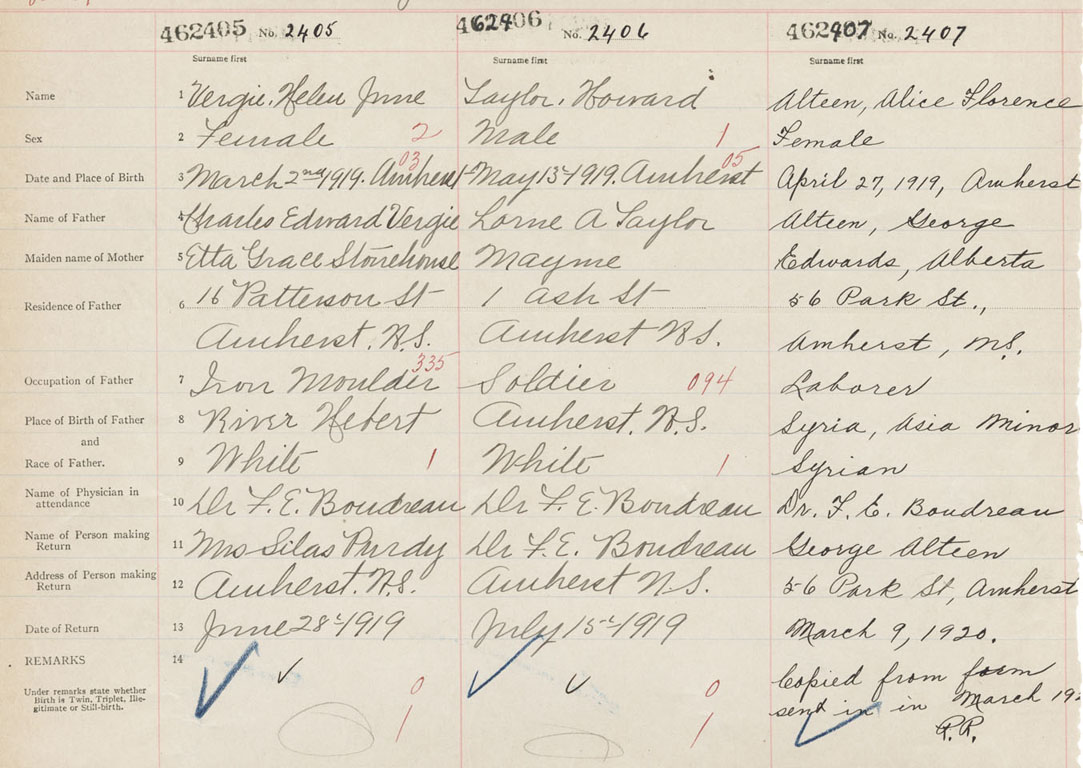 462405 No. 2405 462406 No. 2406 462407 No. 2407
Surname first Surname first Surname first
Name 1 Vergie, Helen June Taylor, Howard Alteen, Alice Florence
Sex 2 Female 2 Male 1 Female
03 05
Date and Place of Birth 3 March 2nd 1919. Amherst May 13th 1919. Amherst April 27, 1919, Amherst
Name of Father 4 Charles Edward Vergie Lorne A Taylor Alteen, George
Maiden name of Mother 5 Etta Grace Stonehouse Mayme Edwards, Alberta
Residence of Father 6 16 Patterson St 1 Ash St 56 Park St.,
Amherst. N.S. Amherst N.S. Amherst, N.S.
335
Occupation of Father 7 Iron Moulder Soldier 094 Laborer
Place of Birth of Father 8 River Hebert Amherst. N.S. Syria, Asia Minor
and
Race of Father. 9 White 1 White 1 Syrian
Name of Physician in
attendance 10 Dr F. E. Boudreau Dr F. E. Boudreau Dr. F. E. Boudreau
Name of Person making
Return 11 Mrs Silas Purdy Dr F. E. Boudreau George Alteen
Address of Person making
Return 12 Amherst. N.S. Amherst N.S. 56 Park St, Amherst
Date of Return 13 June 28th 1919 July 15th 1919 March 9, 1920.
REMARKS 14
Under remarks state whether
Birth is Twin, Triplet, Ille-
gitimate or Still-birth.
0 0 Copied from form
1 1 sent in in March 19
P.P.